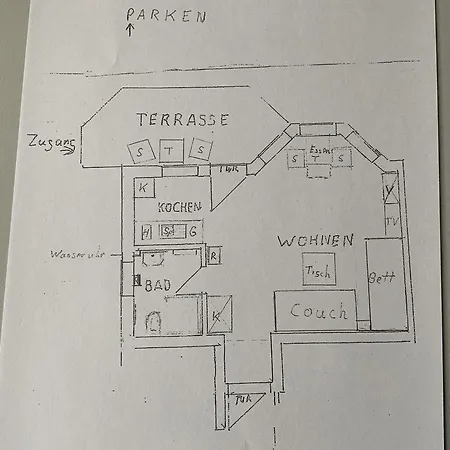 PARKEN
TERRASSE
Zugang
S T S
TÜR
ESSEN
S T S
K
KOCHEN
TV
H S G
WOHNEN
Wasseruhr
R
BAD
Tisch
Bett
K
Couch
TÜR